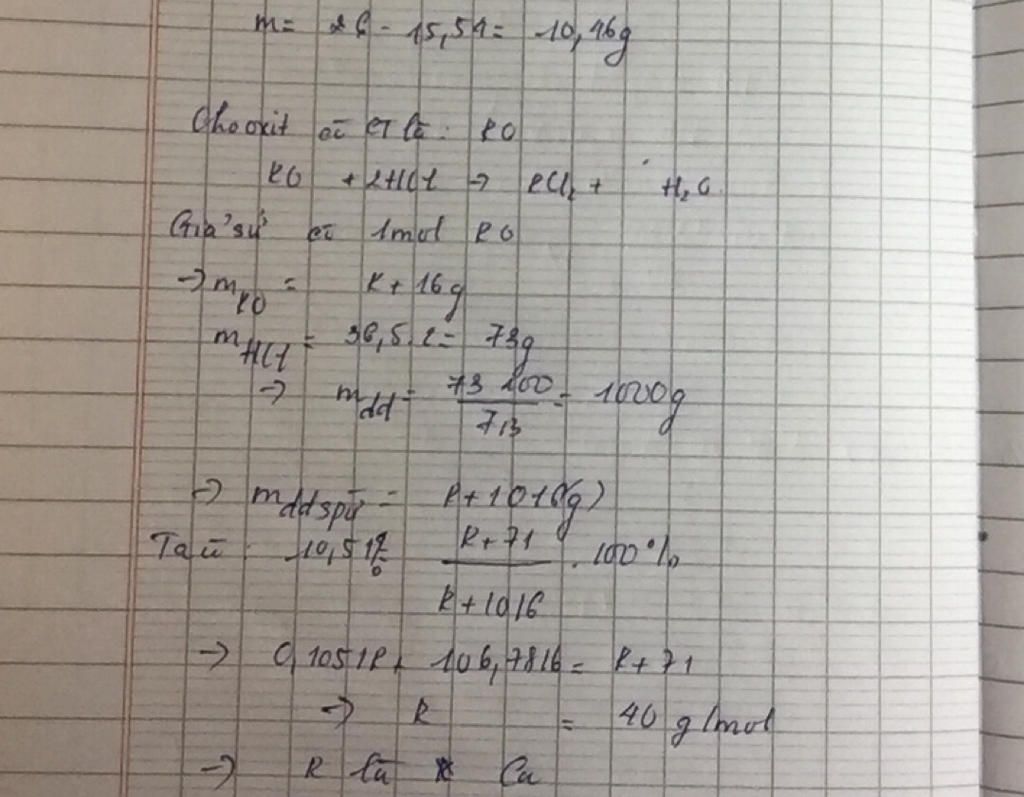 m = 26 - 15,54 = 10,46g
Cho oxit có CT là: RO
RO + 2HCl → RCl₂ + H₂O
Giả sử có 1mol RO
→ m RO = R + 16g
m HCl = 36,5.2 = 73g
→ m dd = 73.100 / 7,3 = 1000g
→ m ddspứ = R + 1016(g)
Ta có: 10,51% = R + 71 / R + 1016 . 100%
→ 0,1051R + 106,7816 = R + 71
→ R = 40 g/mol
→ R là Ca